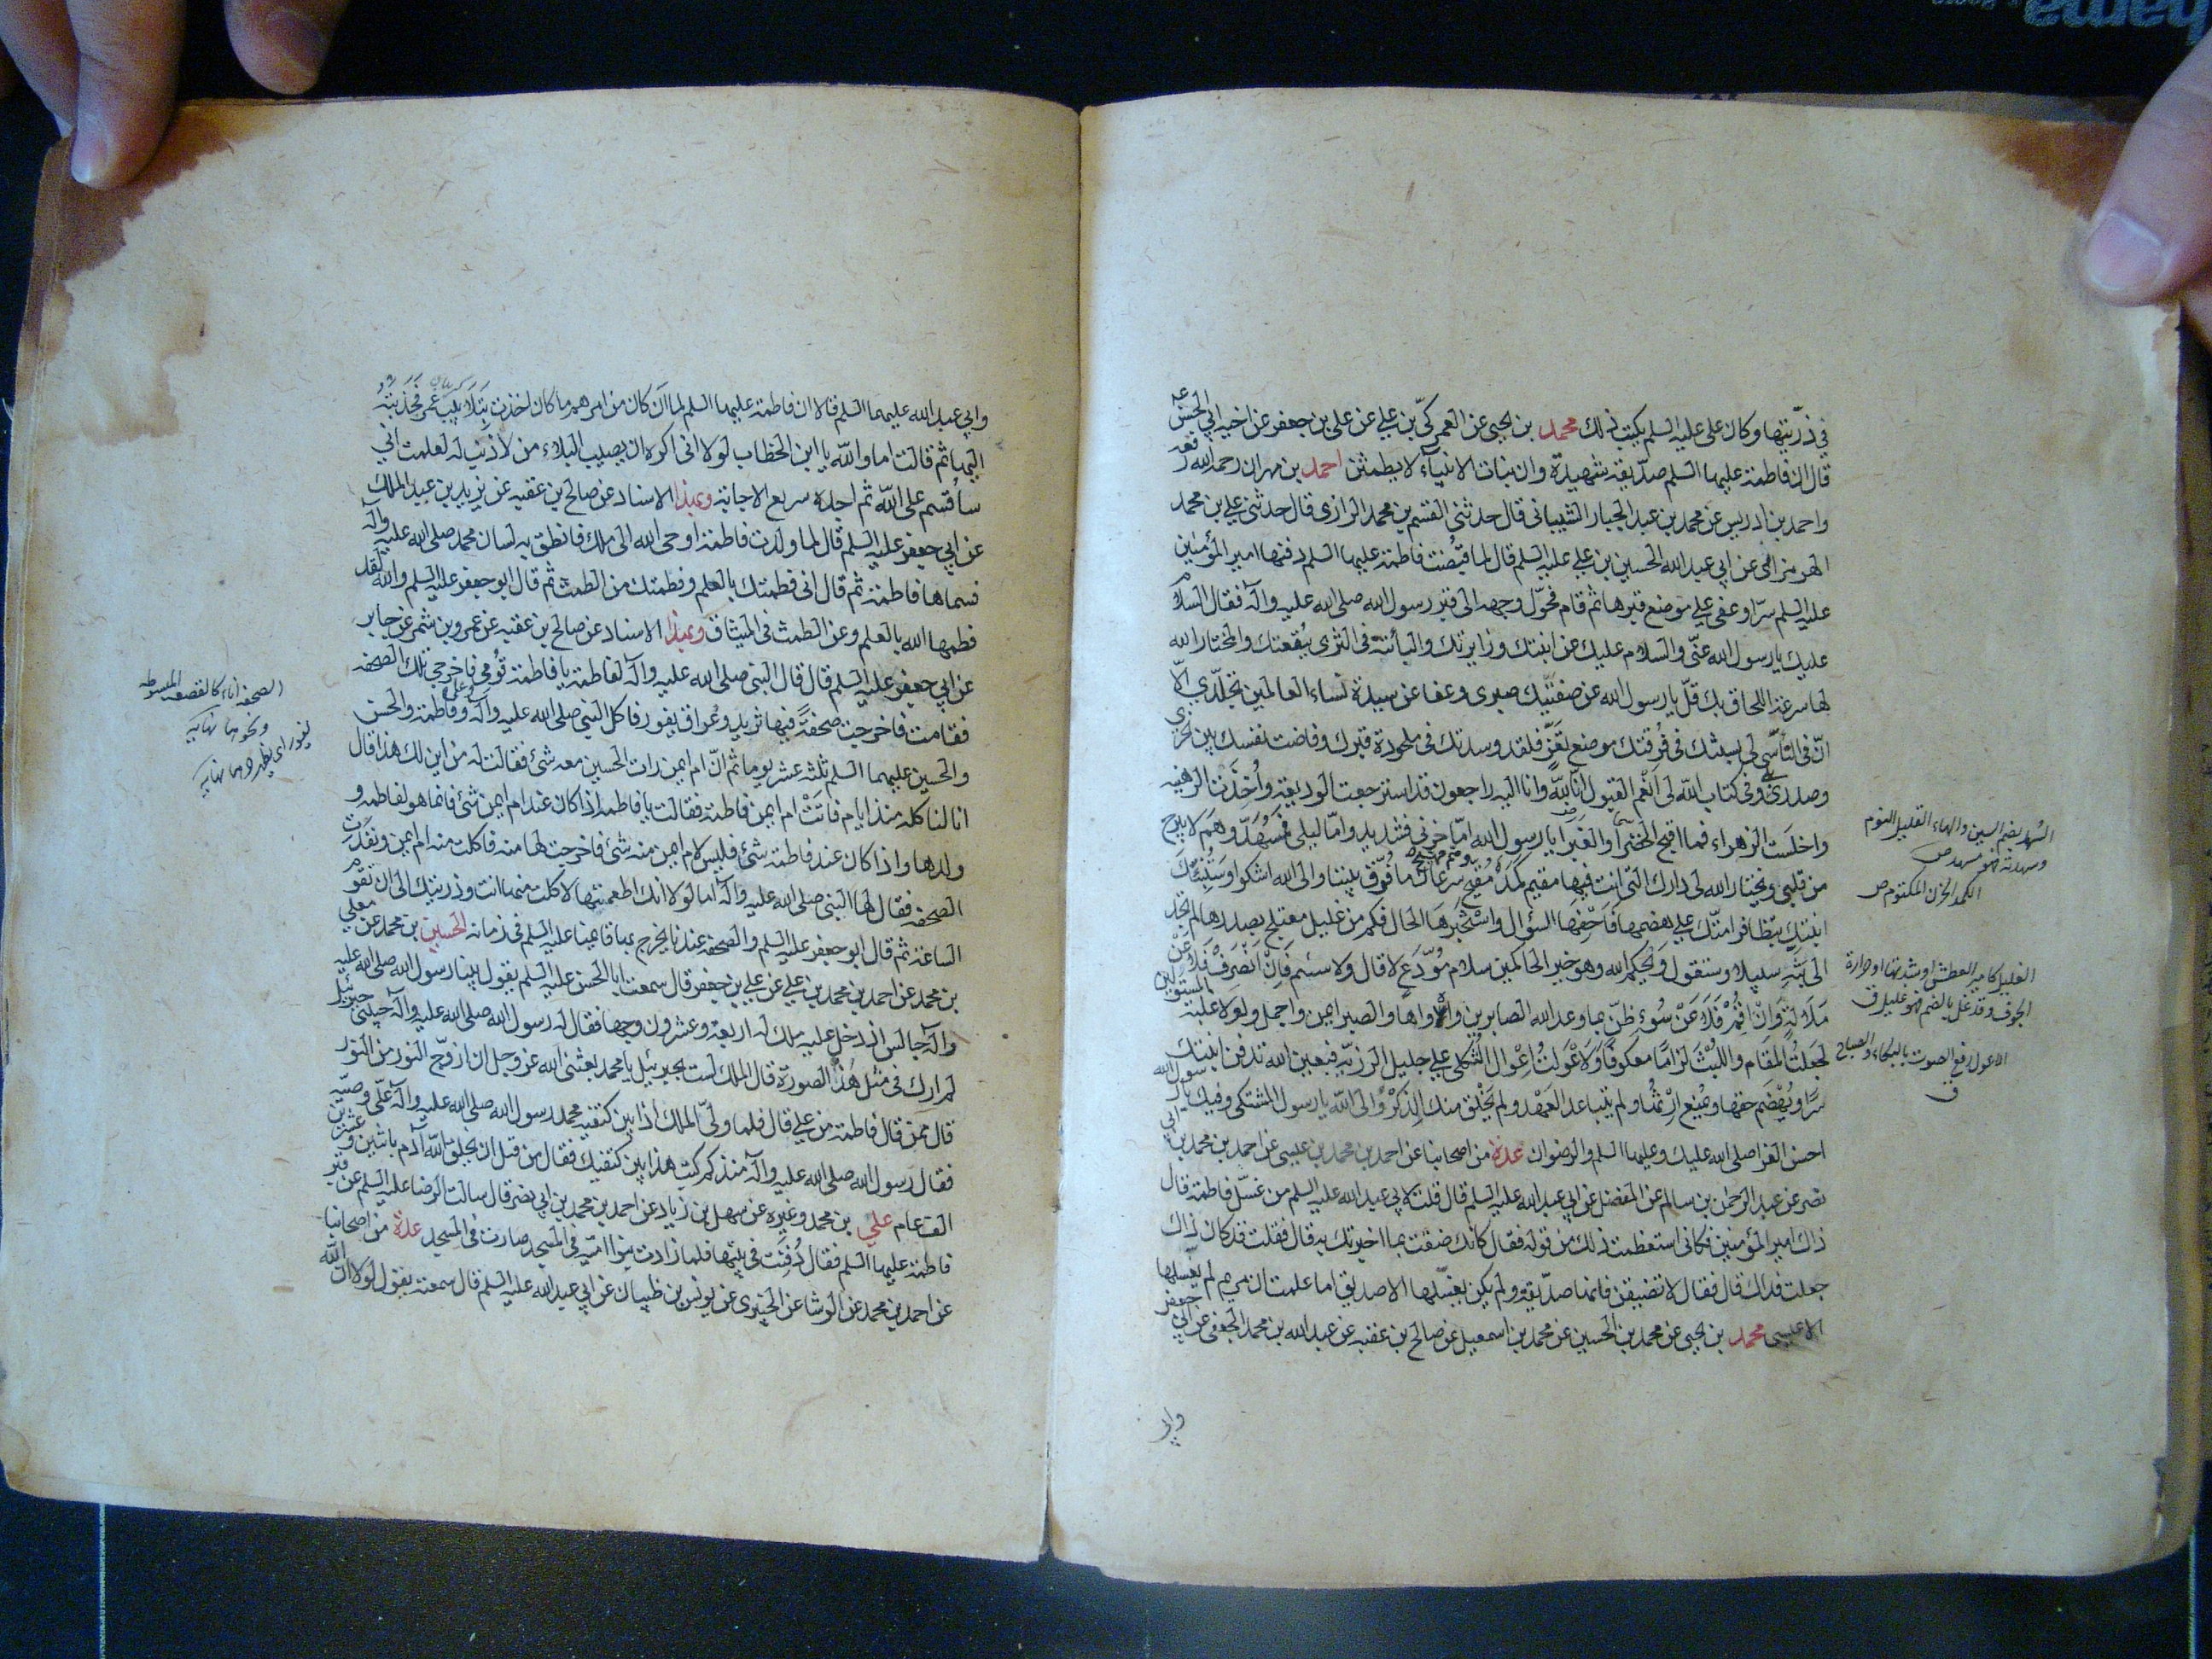 في ذرّيتها وكان علي عليه السلم يكتب ذلك محمد بن يحيى عن العمركيّ بن علي عن علي بن جعفر عن اخيه ابي الحسن عه
قال ان فاطمة عليها السلم صدّيقة شهيدة وان بنات الانبيآء لا يطمثن احمد بن مهران رحمه الله رفعه
واحمد بن ادريس عن محمد بن عبد الجبار الشيباني قال حدثني القسم بن محمد الرازي قال حدثني علي بن محمد
الهرمزاني عن ابي عبد الله الحسين بن علي عليه السلم قال لما قبضت فاطمة عليها السلم دفنها امير المؤمنين
عليه السلم سرّا وعفى على موضع قبرها ثم قام فحوّل وجهه الى قبر رسول الله صلى الله عليه وآله فقال السلام
عليك يا رسول الله عنّي والسلام عليك عن ابنتك وزايرتك والبائتة في الثرى ببقعتك والمختار الله
لها سرعة اللحاق بك قلّ يا رسول الله عن صفيّتك صبري وعفا عن سيدة نساء العالمين تجلّدي الّا
انّ في التأسّي لي بسنتك في فرقتك موضع تعزّ فلقد وسدتك في ملحودة قبرك وفاضت نفسك بين نحري
وصدري بلى وفي كتاب الله لي انعم القبول انّا لله وانا اليه راجعون قد استرجعت الوديعة واُخذت الرهينه
واخلست الزهراء فما اقبح الخضرا والغبرا يا رسول الله امّا حزني فشديد وامّا ليلي فمسهّد وهمّ لا يبرح
من قلبي او يختار الله لي دارك التي انت فيها مقيم كمد مقيّح وهم مهيج سرعان ما فرّق بيننا والى الله اشكو وستنبئك
ابنتك بتظافر امتك على هضمها فاحفها السؤال واستخبرها الحال فكم من غليل معتلج بصدرها لم تجد
الى بثّه سبيلا وستقول ويحكم الله وهو خير الحاكمين سلام مودّع لا قال ولا سئم فان انصرف فلا عن
ملالة وان اقم فلا عن سوء ظنّ بما وعد الله الصابرين واه واها والصبر ايمن واجمل ولولا غلبة المستولين
لجعلت المقام واللبث لزاما معكوفا ولاعولت اعوال الثكلى على جليل الرزيّة فبعين الله تدفن ابنتك
سرّا ويهضم حقها ويمنع ارثها ولم يتباعد العهد ولم يخلق منك الذكر والى الله يا رسول الله المشتكى وفيك يا رسول الله
احسن العزا صلى الله عليك وعليها السلم والرضوان عدة من اصحابنا عن احمد بن محمد بن عيسى عن احمد بن محمد بن ابي
نصر عن عبد الرحمن بن سالم عن المفضل عن ابي عبد الله عليه السلم قال قلت لابي عبد الله عليه السلم من غسّل فاطمة قال
ذاك امير المؤمنين فكاني استعظمت ذلك من قوله فقال كانك ضقت بما اخبرتك به قال فقلت قد كان ذاك
جعلت فداك قال فقال لا تضيقن فانها صدّيقة ولم يكن يغسّلها الا صديق اما علمت ان مريم لم يغسلها
الا عيسى محمد بن يحيى عن محمد بن الحسين عن محمد بن اسمعيل عن صالح بن عقبه عن عبد الله بن محمد الجعفي عن ابي جعفر
وابي
السُهد بضم السين والهاء القليل النوم
وسهدته فهو مسهد ص
الكمد الحزن المكتوم ص
الغليل كامير العطش او شدتها او حرارة
الجوف وقد غل بالضم فهو غليل ق
الاعول رفع الصوت بالبكاء والصياح
ق
وابي عبد الله عليهما السلم قالا ان فاطمة عليها السلم لما ان كان من امرهم ما كان اخذت بتلابيب عمر فجذبته
اليها ثم قالت اما والله يا ابن الخطاب لولا اني اكره ان يصيب البلاء من لا ذنب له لعلمت اني
سأقسم على الله ثم اجده سريع الاجابة وبهذا الاسناد عن صالح بن عقبه عن يزيد بن عبد الملك
عن ابي جعفر عليه السلم قال لما ولدت فاطمة اوحى الله الى ملك فانطق به لسان محمد صلى الله عليه وآله
فسماها فاطمة ثم قال اني فطمتك بالعلم وفطمتك من الطمث ثم قال ابو جعفر عليه السلم والله لقد
فطمها الله بالعلم وعن الطمث في الميثاق وبهذا الاسناد عن صالح بن عقبه عن عمرو بن شمر عن جابر
عن ابي جعفر عليه السلم قال قال النبي صلى الله عليه وآله لفاطمة يا فاطمة قومي فاخرجي تلك الصحفه
فقامت فاخرجت صحفة فيها ثريد وعراق يفور فاكل النبي صلى الله عليه وآله وعلي وفاطمة والحسن
والحسين عليهما السلم ثلثة عشر يوما ثم انّ ام ايمن رات الحسين معه شئ فقالت له من اين لك هذا قال
انا لناكله منذ ايام فاتت ام ايمن فاطمة فقالت يا فاطمه اذا كان عند ام ايمن شئ فانما هو لفاطمه و
ولدها واذا كان عند فاطمة شئ فليس لام ايمن منه شئ فاخرجت لها منه فاكلت منه ام ايمن ونفدت
الصحفه فقال لها النبي صلى الله عليه وآله اما لولا انك اطعمتها لاكلت منها انت وذريتك الى ان تقوم
الساعة ثم قال ابو جعفر عليه السلم والصحفة عندنا يخرج بها قايمنا عليه السلم في زمانه الحسين بن محمد عن معلي
بن محمد عن احمد بن محمد بن علي عن علي بن جعفر قال سمعت ابا الحسن عليه السلم يقول بينا رسول الله صلى الله عليه
وآله جالس اذ دخل عليه ملك له اربعة وعشرون وجها فقال له رسول الله صلى الله عليه وآله حبيبي جبرئيل
لم ارك في مثل هذه الصورة قال الملك لست بجبرئيل يا محمد بعثني الله عز وجل ان ازوّج النور من النور
قال من ممن قال فاطمة من علي قال فلما ولّى الملك اذا بين كتفيه محمد رسول الله صلى الله عليه وآله علي وصيّه
فقال رسول الله صلى الله عليه وآله منذ كم كتب هذا بين كتفيك فقال من قبل ان يخلق الله آدم باثنين وعشرين
الف عام علي بن محمد وغيره عن سهل بن زياد عن احمد بن محمد بن ابي نصر قال سالت الرضا عليه السلم عن قبر
فاطمة عليها السلم فقال دُفنت في بيتها فلما زادت بنو اميّه في المسجد صارت في المسجد عدة من اصحابنا
عن احمد بن محمد عن الوشا عن الخيبري عن يونس بن ظبيان عن ابي عبد الله عليه السلم قال سمعته يقول لولا ان الله
الصحفه اناء كالقصعه المبسوطه
ونحوها نهايه
يفور اي يظهر نهايه